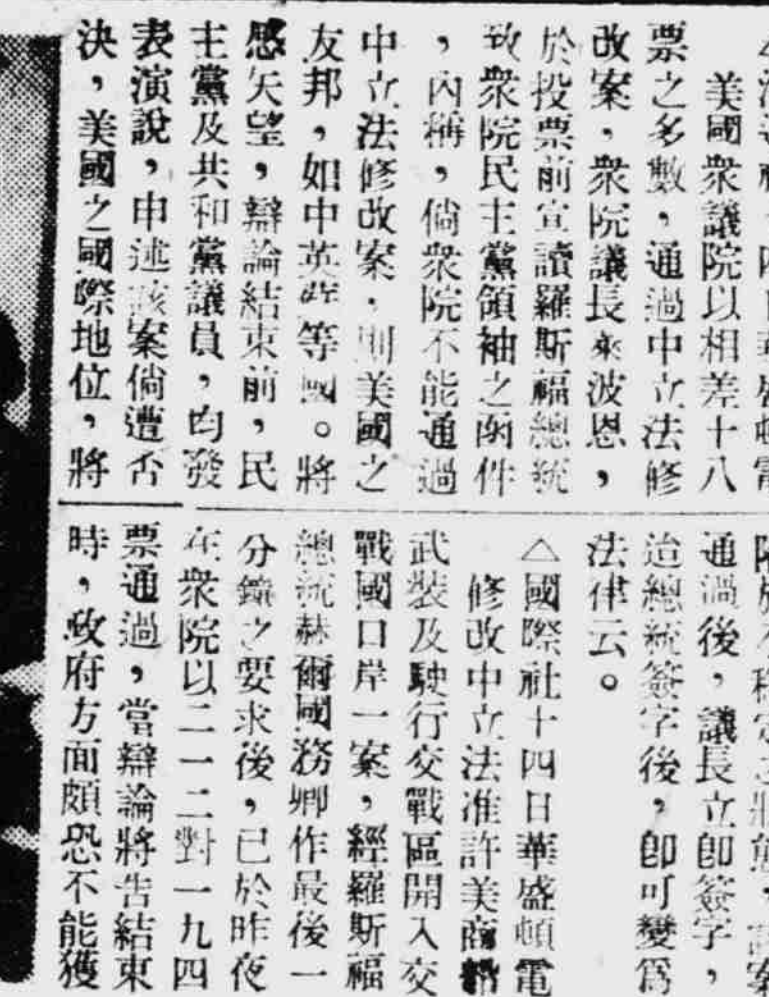 美國衆議院以相差十八
票之多數，通過中立法修
改案，衆院議長來波恩，
於投票前宣讀羅斯福總統
致衆院民主黨領袖之函件
，內稱，倘衆院不能通過
中立法修改案，則美國之
友邦，如中英蘇等國。將
感失望，辯論結束前，民
主黨及共和黨議員，均發
表演說，申述該案倘遭否
決，美國之國際地位，將
通過後，議長立即簽字，
迨總統簽字後，卽可變爲
法律云。
△國際社十四日華盛頓電
修改中立法准許美商船
武裝及駛行交戰區開入交
戰國口岸一案，經羅斯福
總統赫爾國務卿作最後一
分鐘之要求後，已於昨夜
在衆院以二一二對一九四
票通過，當辯論將告結束
時，政府方面頗恐不能獲